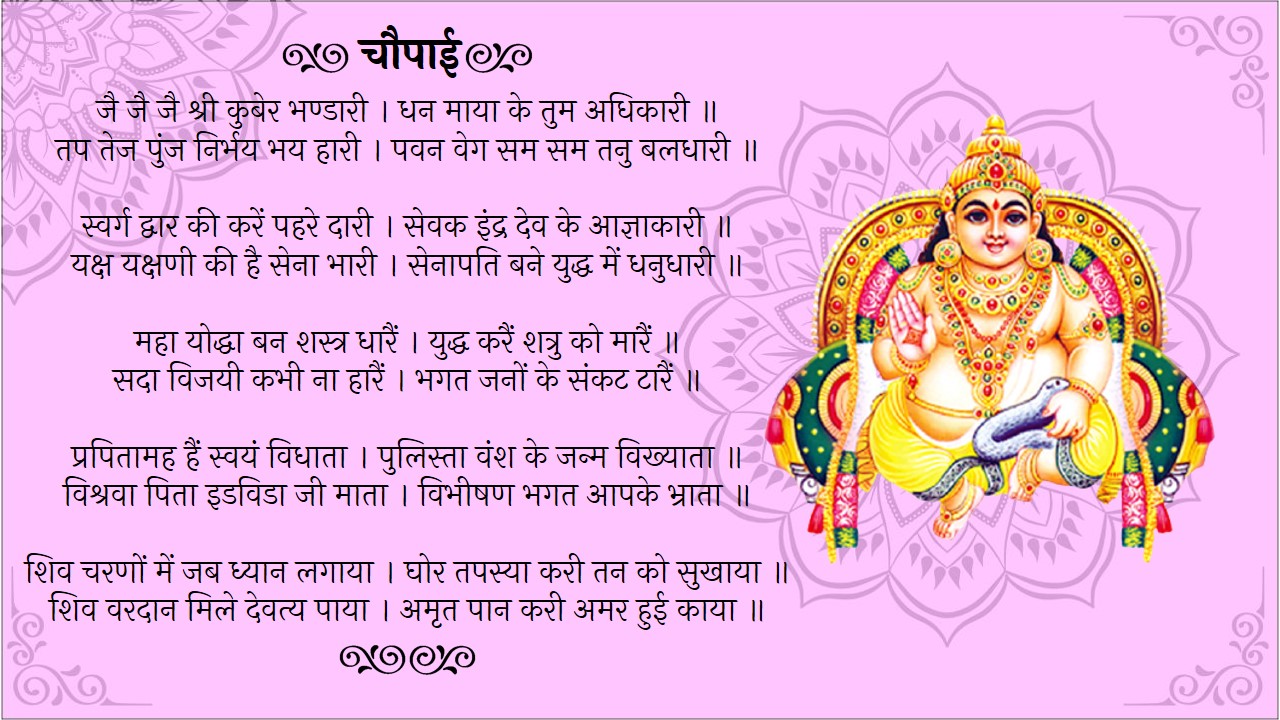 चौपाई
जै जै जै श्री कुबेर भण्डारी । धन माया के तुम अधिकारी ॥
तप तेज पुंज निर्भय भय हारी । पवन वेग सम सम तनु बलधारी ॥
स्वर्ग द्वार की करें पहरे दारी । सेवक इंद्र देव के आज्ञाकारी ॥
यक्ष यक्षणी की है सेना भारी । सेनापति बने युद्ध में धनुधारी ॥
महा योद्धा बन शस्त्र धारैं । युद्ध करैं शत्रु को मारैं ॥
सदा विजयी कभी ना हारैं । भगत जनों के संकट टारैं ॥
प्रपितामह हैं स्वयं विधाता । पुलिस्ता वंश के जन्म विख्याता ॥
विश्रवा पिता इडविडा जी माता । विभीषण भगत आपके भ्राता ॥
शिव चरणों में जब ध्यान लगाया । घोर तपस्या करी तन को सुखाया ॥
शिव वरदान मिले देवत्य पाया । अमृत पान करी अमर हुई काया ॥